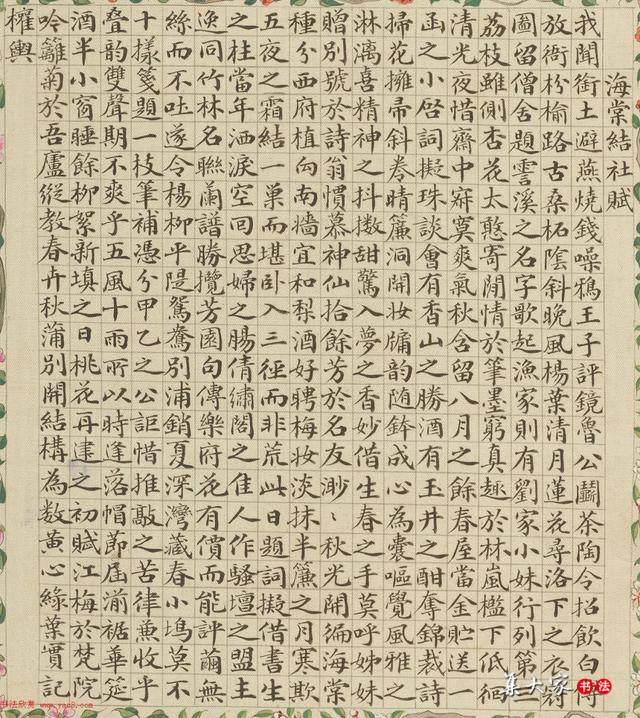 海棠結社賦
我聞銜土避燕燒錢噪鴉王子評鏡魯公鬬茶陶令招飲白傅
放衙枌榆路古桑柘陰斜晚風楊葉清月蓮花尋洛下之衣冠
圖留僧舍題霅溪之名字歌起漁家則有劉家小妹行列第
荔枝雖側杏花太憨寄閒情於筆墨窮真趣於林嵐檻下低徊
清光夜惜齋中寂寞爽氣秋含留八月之餘春屋當金貯送一
函之小啓詞擬珠談會有香山之勝酒有玉井之酣奪錦裁詩
掃花擁帚斜卷晴簾洞開妝牖韵随鉢成心為囊嘔覺風雅之
淋漓喜精神之抖擻甜驚入夢之香妙借生春之手莫呼姊妹
贈別號於詩翁慣慕神仙拾餘芳於名友渺丶秋光開徧海棠
種分西府植向南墻宜和梨酒好聘梅妝淡抹半簾之月寒欺
五夜之霜結一巢而堪卧入三徑而非荒此日題詞擬借書生
之柱當年洒淚空回思婦之腸倩繡閣之佳人作騷壇之盟主
逸同竹林名聯蘭譜勝攬芳園句傳樂府花有價而能評繭無
絲而不吐遂令楊柳平隄鴛鴦別浦銷夏深灣藏春小塢莫不
十樣箋題一枝筆補憑分甲乙之公詎惜推敲之苦律兼收乎
疊韵雙聲期不爽乎五風十雨所以時逢落帽節屆湔裙華筵
酒半小窗睡餘柳絮新填之日桃花再建之初賦江梅於梵院
吟籬菊於吾廬縱教春卉秋蒲別開結構為數黃心綠葉實記
權輿
集大家书法
书法欣赏